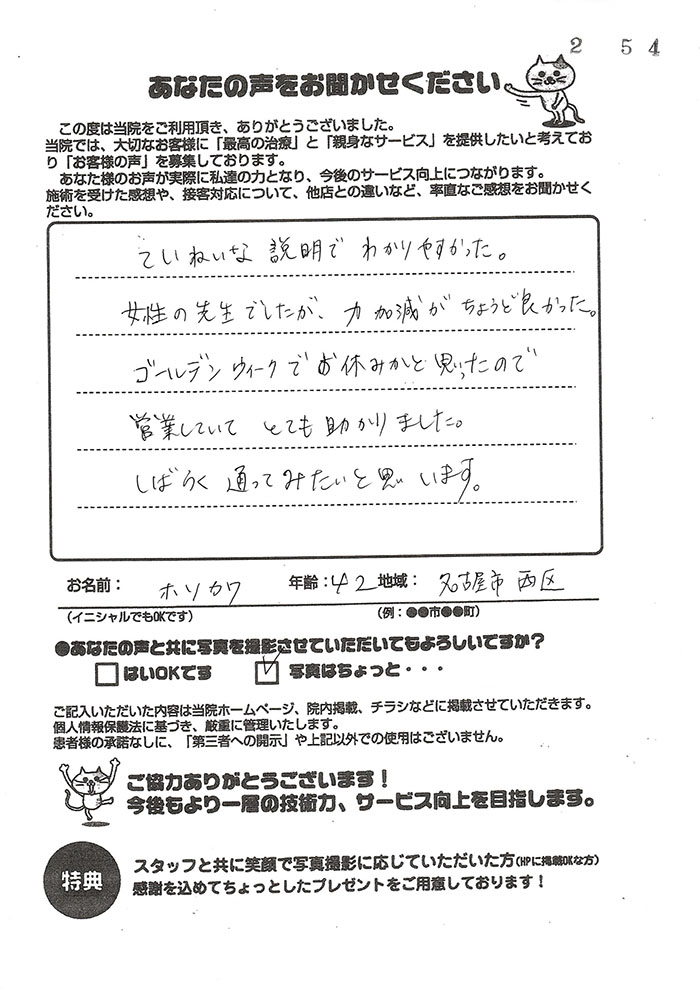 2 5 4
あなたの声をお聞かせください
この度は当院をご利用頂き、ありがとうございました。
当院では、大切なお客様に「最高の治療」と「親身なサービス」を提供したいと考えてお
り「お客様の声」を募集しております。
あなた様のお声が実際に私達の力となり、今後のサービス向上につながります。
施術を受けた感想や、接客対応について、他店との違いなど、率直なご感想をお聞かせく
ださい。
ていねいな説明でわかりやすかった。
女性の先生でしたが、力加減がちょうど良かった。
ゴールデンウィークでお休みかと思ったので
営業していてとても助かりました。
しばらく通ってみたいと思います。
お名前：ホソカワ 年齢：42 地域：名古屋市西区
（イニシャルでもOKです） （例：●●市●●町）
●あなたの声と共に写真を撮影させていただいてもよろしいですか？
□はいOKです ☑写真はちょっと・・・
ご記入いただいた内容は当院ホームページ、院内掲載、チラシなどに掲載させていただきます。
個人情報保護法に基づき、厳重に管理いたします。
患者様の承諾なしに、「第三者への開示」や上記以外での使用はございません。
ご協力ありがとうございます！
今後もより一層の技術力、サービス向上を目指します。
特典
スタッフと共に笑顔で写真撮影に応じていただいた方(HPに掲載OKな方)
感謝を込めてちょっとしたプレゼントをご用意しております！